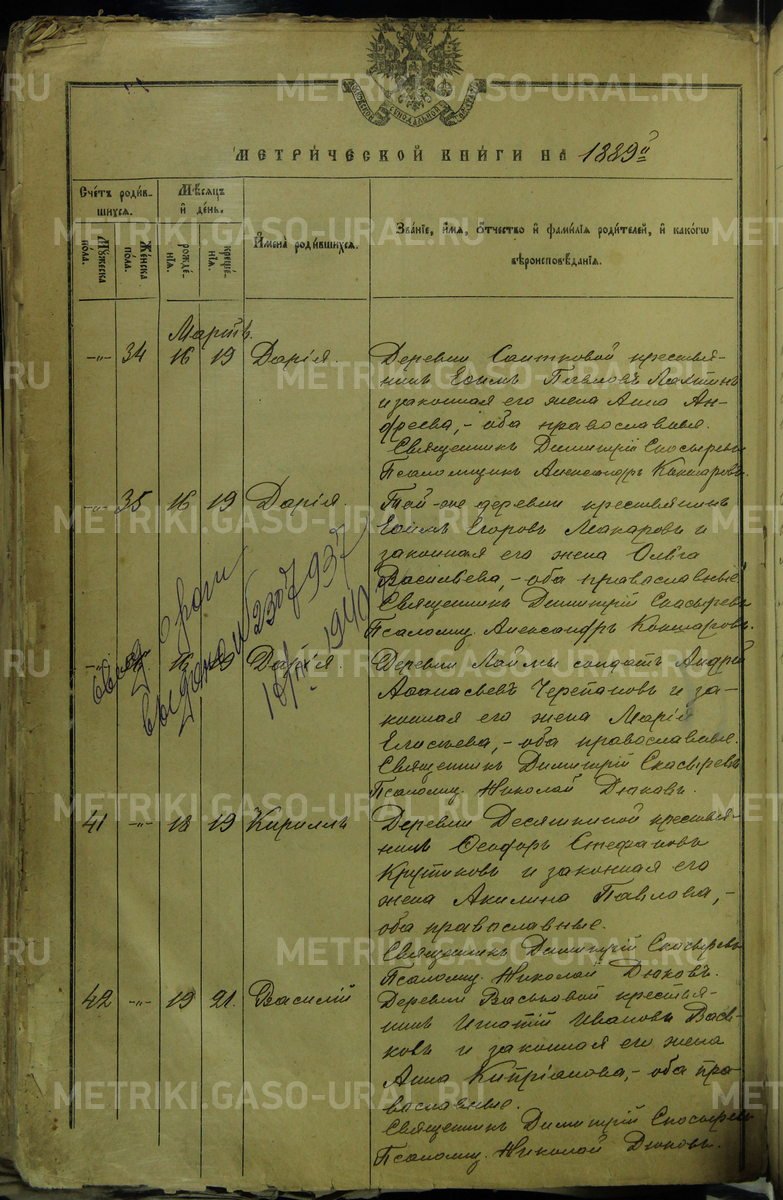 МЕТРИ́ЧЕСКОЙ КНИ́ГИ НА 1889й
Счётъ роди́в-
шихся.
Му́жеска
по́ла.
Же́нска
по́ла.
Мѣ́сяцъ
и҆ де́нь.
рожде́-
нїѧ.
креще́-
нїѧ.
И҆мена̀ роди́вшихся.
Зва́нїе, и҆́мѧ, ѻ҆́тчество и҆ фами́лїѧ роди́телей, и҆ како́гѡ
вѣроисповѣ́данїѧ.
Мартъ.
-"- 34 16 19 Дарія. Деревни Саитковой крестья-
нинъ Ефимъ Павловъ Лахтинъ
и законная его жена Анна Ан-
дреева, - оба православные.
Священникъ Димитрій Скосыревъ
Псаломщикъ Александръ Кокшаровъ.
-"- 35 16 19 Дарія. Той-же деревни крестьянинъ
Ефимъ Егоровъ Макаровъ и
законная его жена Ольга
Васильева, - оба православные.
Священникъ Димитрій Скосыревъ
Псаломщ. Александръ Кокшаровъ.
-"- 19 Дарія. Деревни Лаймы солдатъ Андрей
Аѳанасьевъ Черепановъ и за-
конная его жена Марія
Елисѣева, - оба православные.
Священникъ Димитрій Скосыревъ
Псаломщ. Николай Дюковъ.
выдано 2307937
1940
41 -"- 18 19 Кириллъ Деревни Десяткиной крестья-
нинъ Ѳеодоръ Стефановъ
Крутиковъ и законная его
жена Акилина Павлова, -
оба православные.
Священникъ Димитрій Скосыревъ
Псаломщ. Николай Дюковъ.
42 -"- 19 21. Василій Деревни Васьковой крестья-
нинъ Игнатій Ивановъ Вась-
ковъ и законная его жена
Анна Кипріанова, - оба пра-
вославные.
Священникъ Димитрій Скосыревъ
Псаломщ. Николай Дюковъ.
METRIKI.GASO-URAL.RU